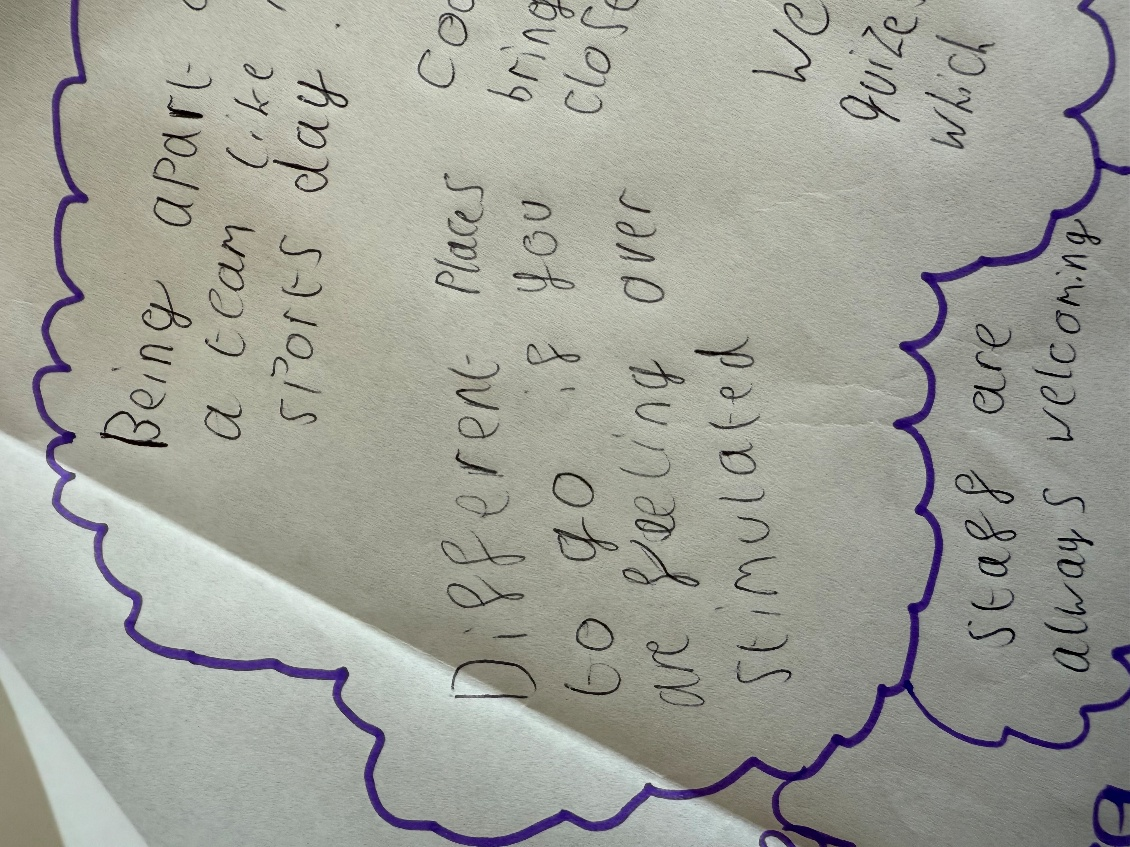 Being apart
a team like
sports day.
Different Places
to go if you
are feeling over
stimulated
bring
close
we
quize
which
Staff are
always welcoming